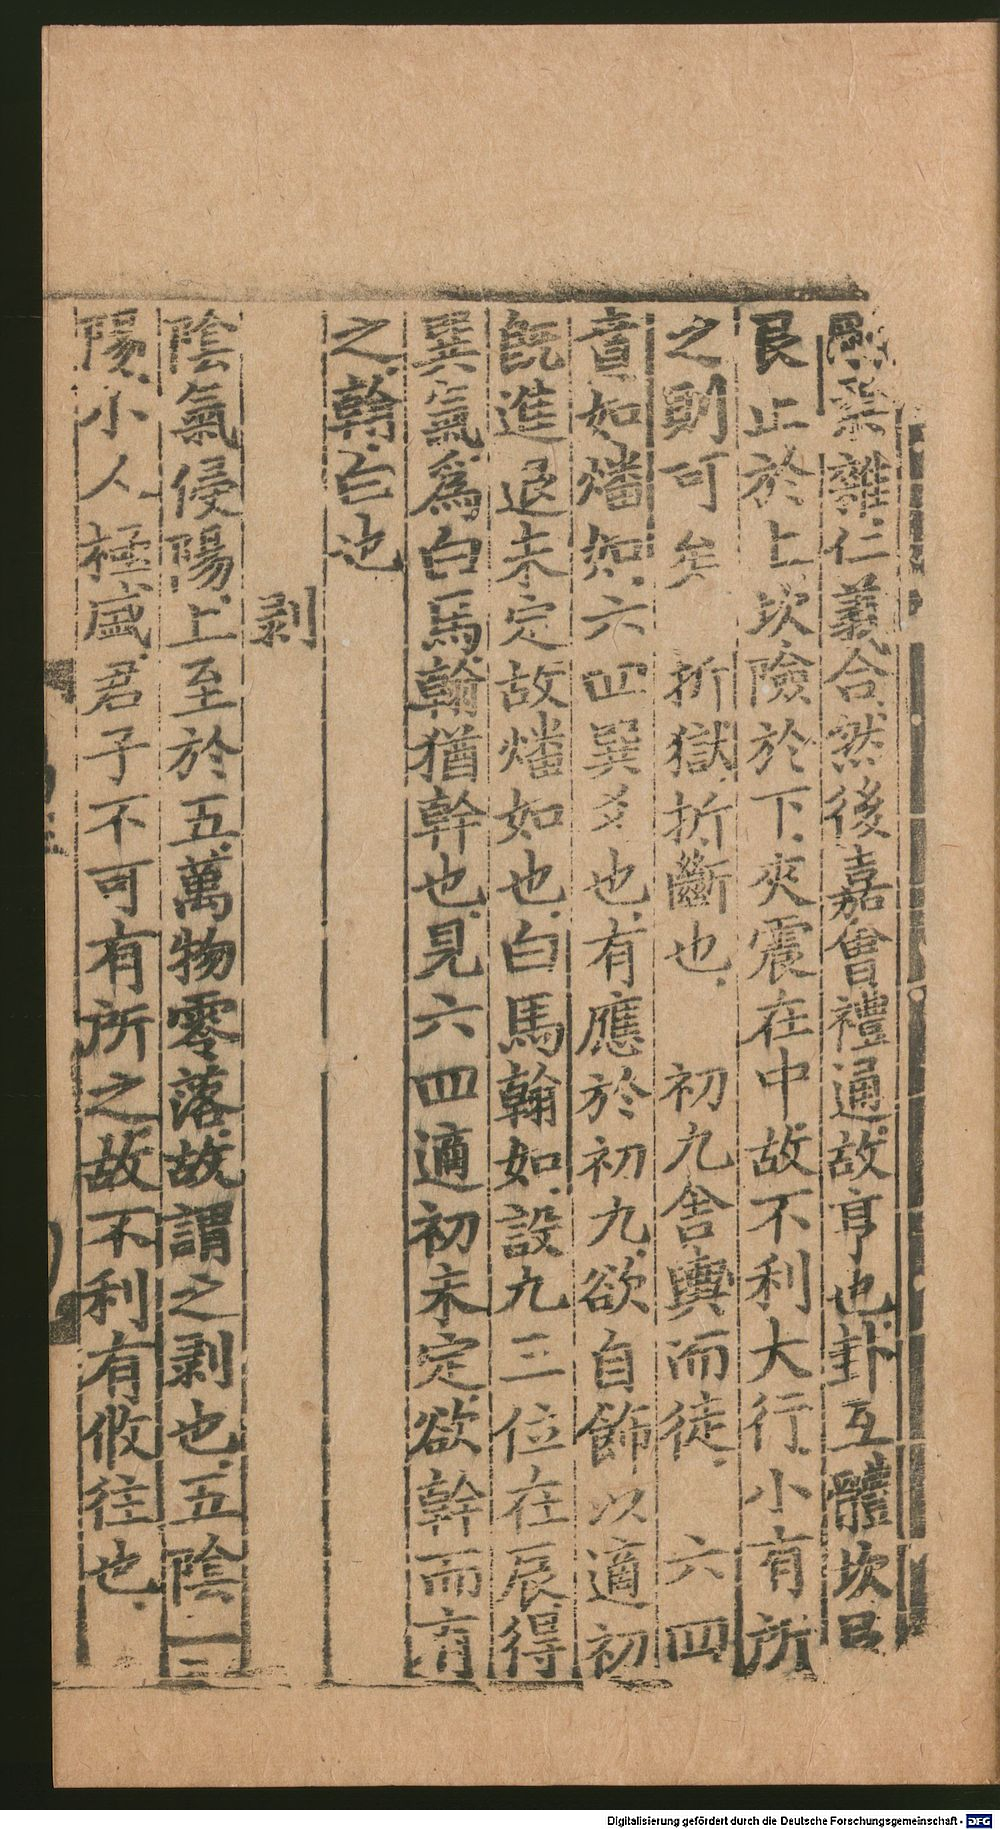 剛柔雜仁義合然後嘉會禮通故亨也卦互體坎艮
艮止於上坎險於下夾震在中故不利大行小有所
之則可矣　折獄折斷也　初九舍輿而徒　六四
賁如燔如六四巽爻也有應於初九欲自飾以適初
旣進退未定故燔如也白馬翰如設九三位在辰得
巽氣爲白馬翰猶幹也見六四適初未定欲幹而有
之翰白也
剥
陰氣侵陽上至於五萬物零落故謂之剥也五陰一
陽小人極盛君子不可有所之故不利有攸往也
Digitalisierung gefördert durch die Deutsche Forschungsgemeinschaft - DFG